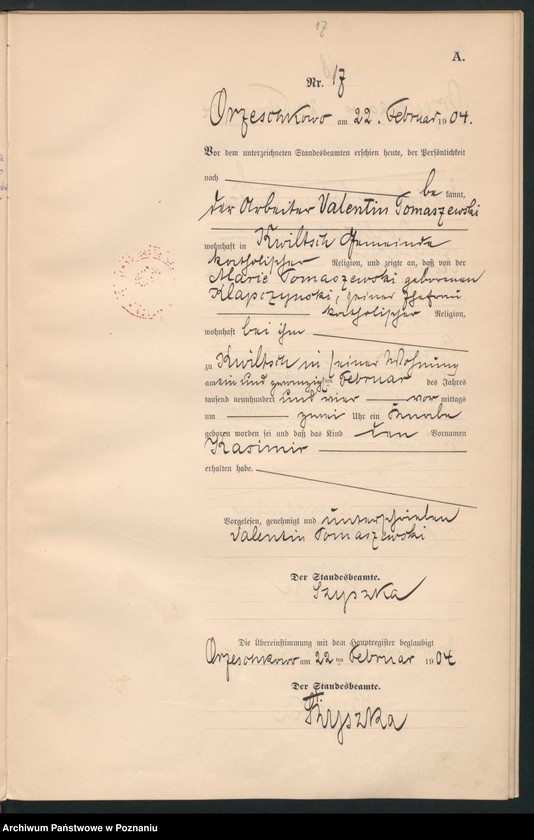 17
A.
Nr. 17
Orzeschkowo am 22. Februar 1904.
Vor dem unterzeichneten Standesbeamten erschien heute, der Persönlichkeit
nach be kannt,
der Arbeiter Valentin Tomaszewski
wohnhaft in Kwiltsch Gemeinde
katholischer Religion, und zeigte an, daß von der
Marie Tomaszewski geborenen
Klapczynski, seiner Ehefrau
katholischer Religion,
wohnhaft bei ihm
zu Kwiltsch in seiner Wohnung
am ein und zwanzigsten Februar des Jahres
tausend neunhundert und vier vor mittags
um zwei Uhr ein Knabe
geboren worden sei und daß das Kind den Vornamen
Kasimir
erhalten habe.
Vorgelesen, genehmigt und unterschrieben
Valentin Tomaszewski
Der Standesbeamte.
Szyszka
Die Übereinstimmung mit dem Hauptregister beglaubigt
Orzeschkowo am 22 ten Februar 1904
Der Standesbeamte.
Szyszka
Archiwum Państwowe w Poznaniu